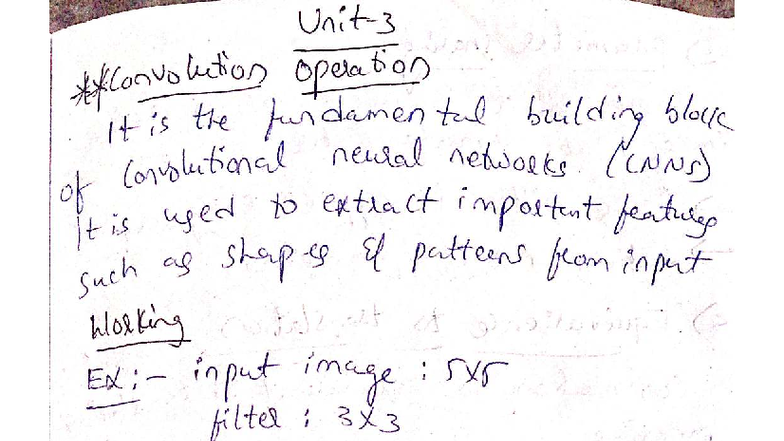 Unit-3
**Convolution Operation
It is the fundamental building block
of Convolutional neural networks. (CNNs)
It is used to extract important features
such as shapes & patterns from input
Working
Ex:- input image : 5x5
filter : 3x3